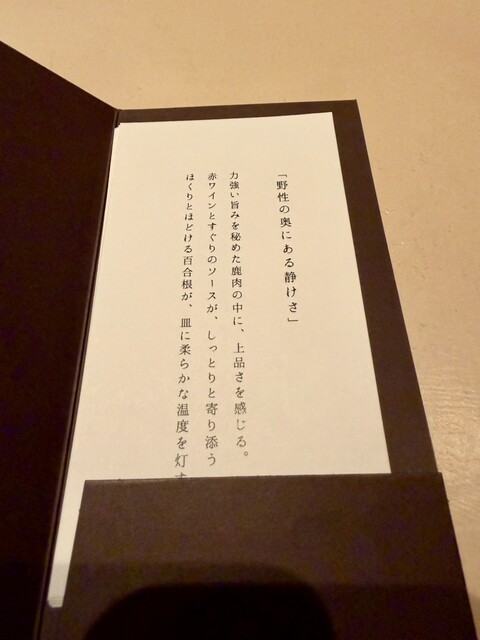 「野性の奥にある静けさ」
力強い旨みを秘めた鹿肉の中に、上品さを感じる。
赤ワインとすぐりのソースが、しっとりと寄り添う
ほくりとほどける百合根が、皿に柔らかな温度を灯す